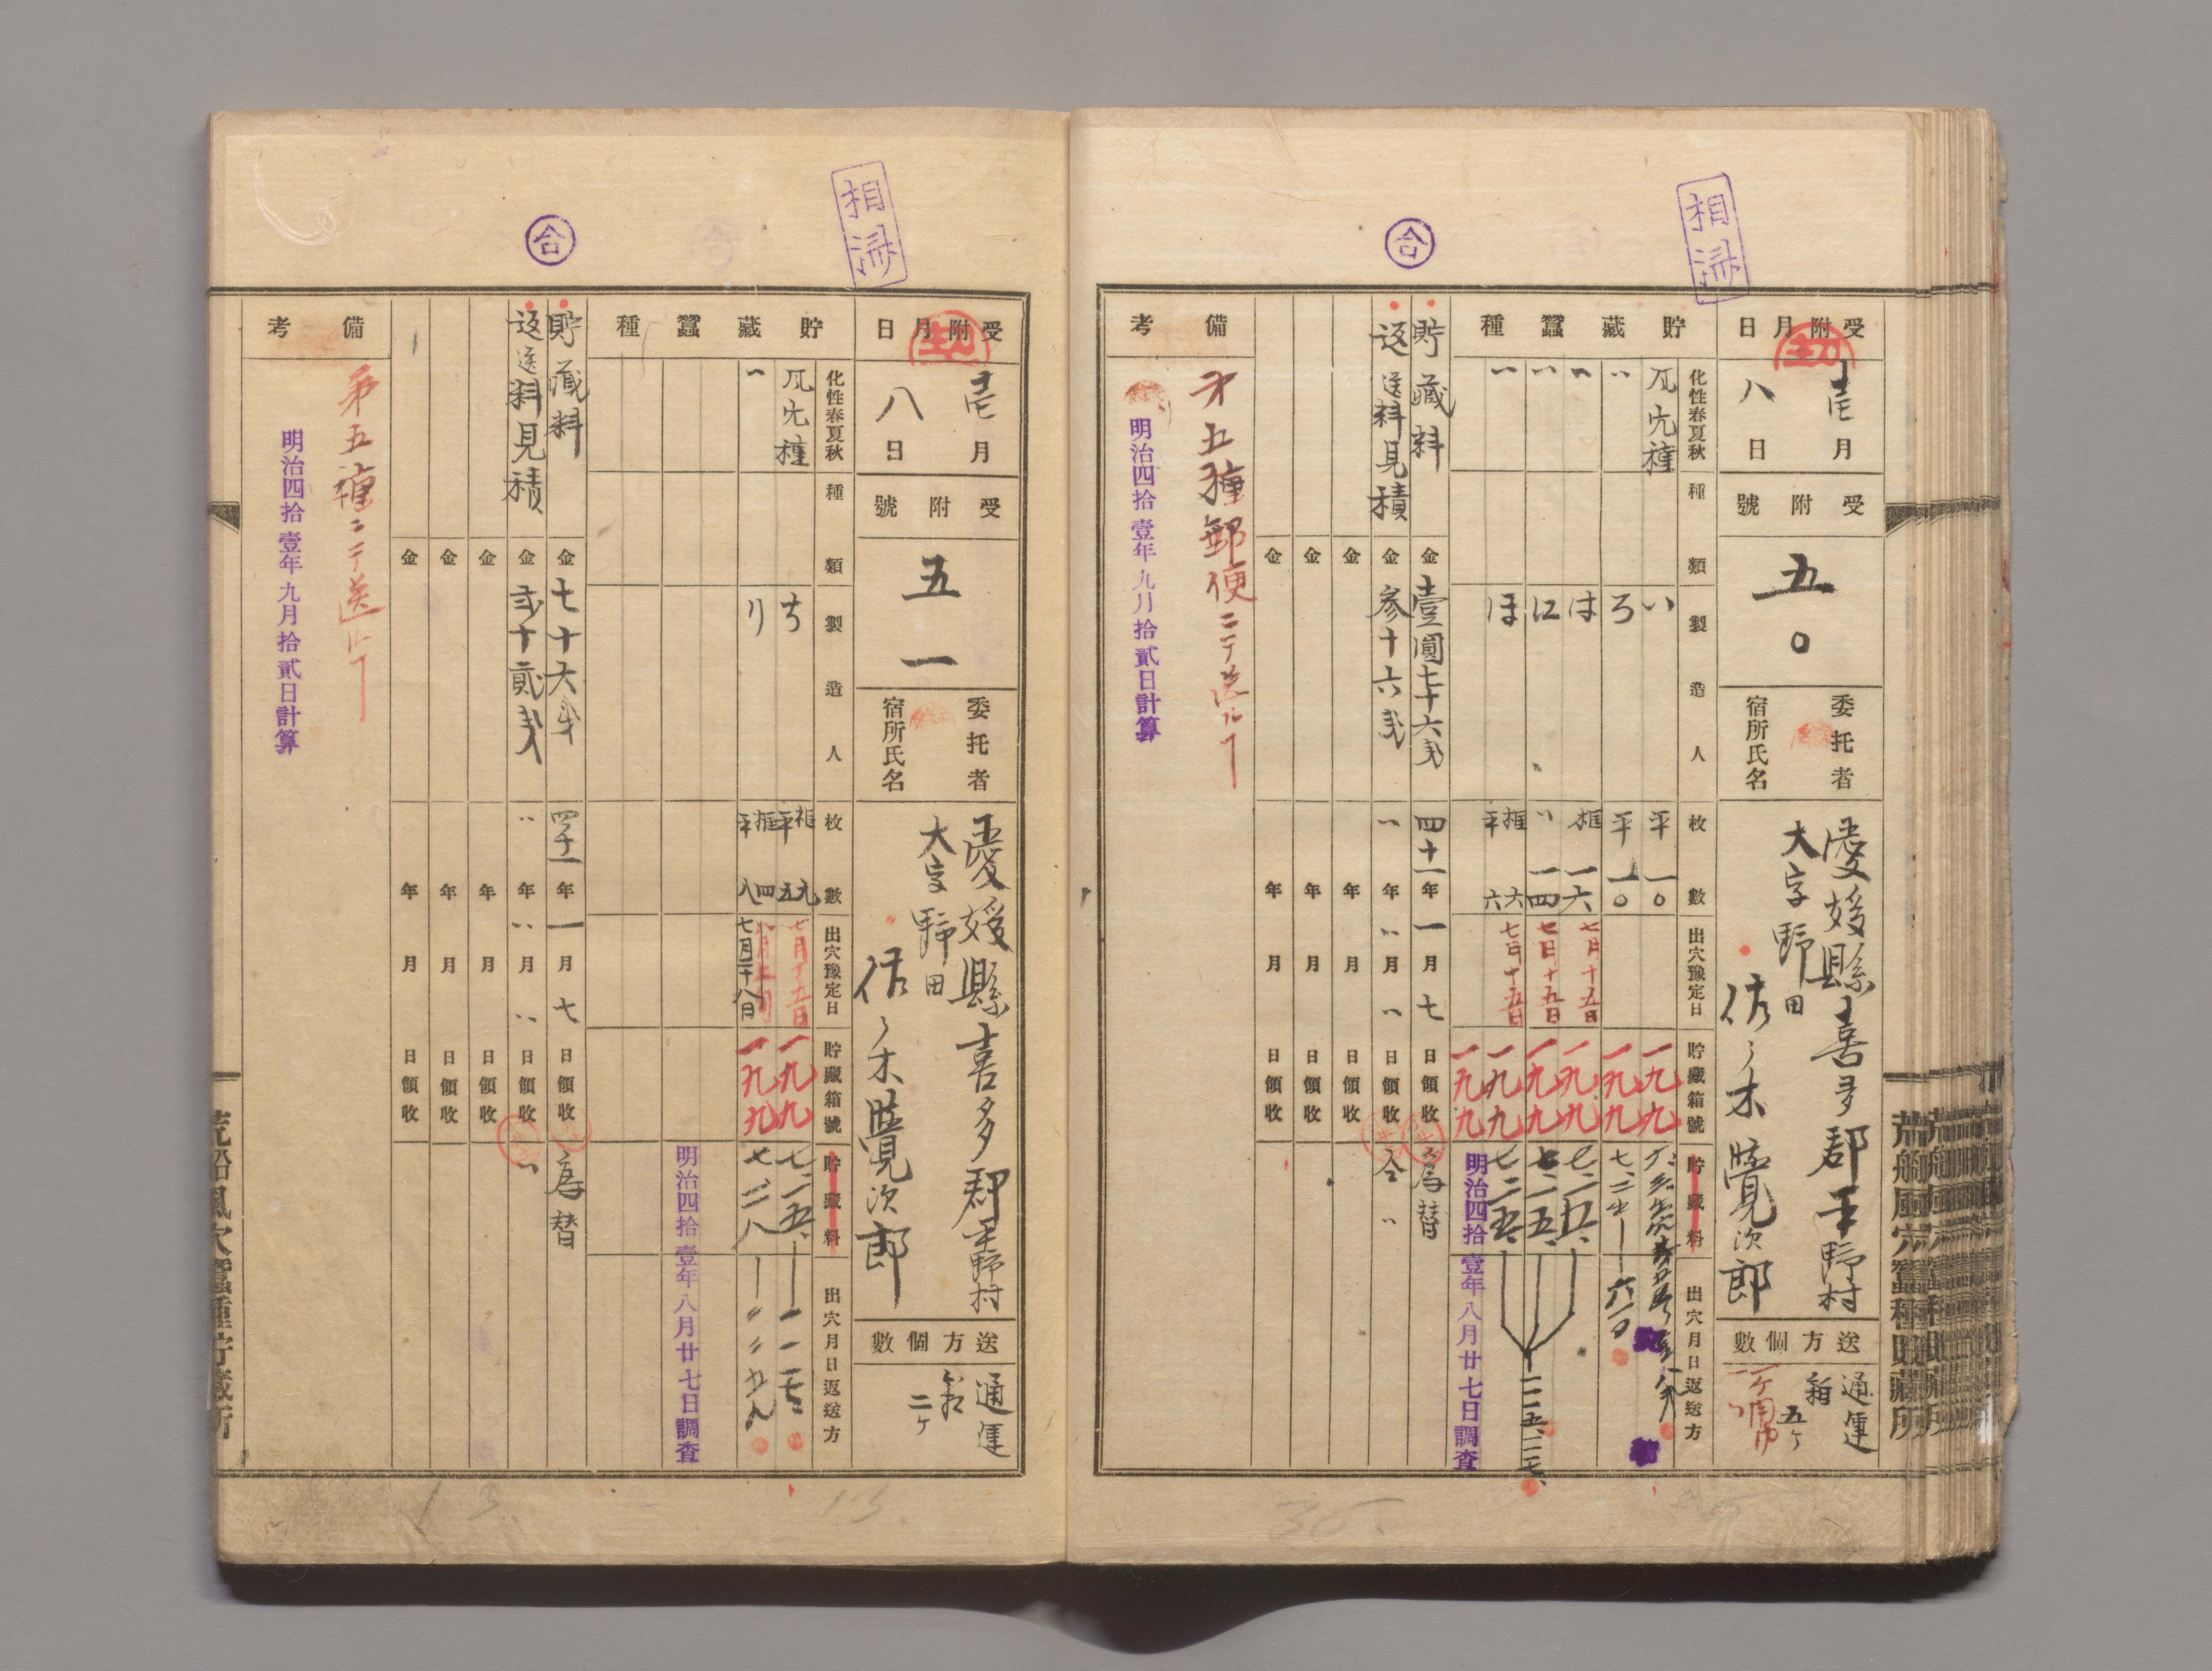 相済
合
受附月日
壱月
八日
受附號
五〇
委托者
宿所氏名
愛媛縣喜多郡平野村
大字野田
佐々木覺次郎
送方個數
通運
箱
五ケ
貯藏蠶種
化性春夏秋
種類
製造人
枚數
出穴豫定日
貯藏箱號
貯藏料
出穴月日返送方
い 平 一〇 一九九
〃 ろ 平 一〇 一九九
〃 は 框 一六 七月十五日 一九九
〃 に 〃 一四 七月十五日 一九九
〃 ほ 框 六 一九九
平 六 七月十五日 一九九
明治四拾壹年八月廿七日調査
貯藏料 金壹圓七十六戔 四十一年一月七日領收 為替
返送料見積 金參十六戔 〃年〃月〃日領收 仝〃
金 年 月 日領收
金 年 月 日領收
金 年 月 日領收
備考
第五種郵便ニテ送ル
明治四拾壹年九月拾貳日計算
荒船風穴蠶種貯藏所
相済
合
受附月日
壱月
八日
受附號
五一
委托者
宿所氏名
愛媛縣喜多郡平野村
大字野田
佐々木覺次郎
送方個數
通運
二ケ
貯藏蠶種
化性春夏秋
種類
製造人
枚數
出穴豫定日
貯藏箱號
貯藏料
出穴月日返送方
ち 框 九 平 五 七月十五日 一九九
〃 り 框 四 平 八 七月二十八日 一九九
明治四拾壹年八月廿七日調査
貯藏料 金七十六戔 四十一年一月七日領收 為替
返送料見積 金弐十貳戔 〃年〃月〃日領收 〃
金 年 月 日領收
金 年 月 日領收
金 年 月 日領收
備考
第五種ニテ送ル
明治四拾壹年九月拾貳日計算
荒船風穴蠶種貯藏所